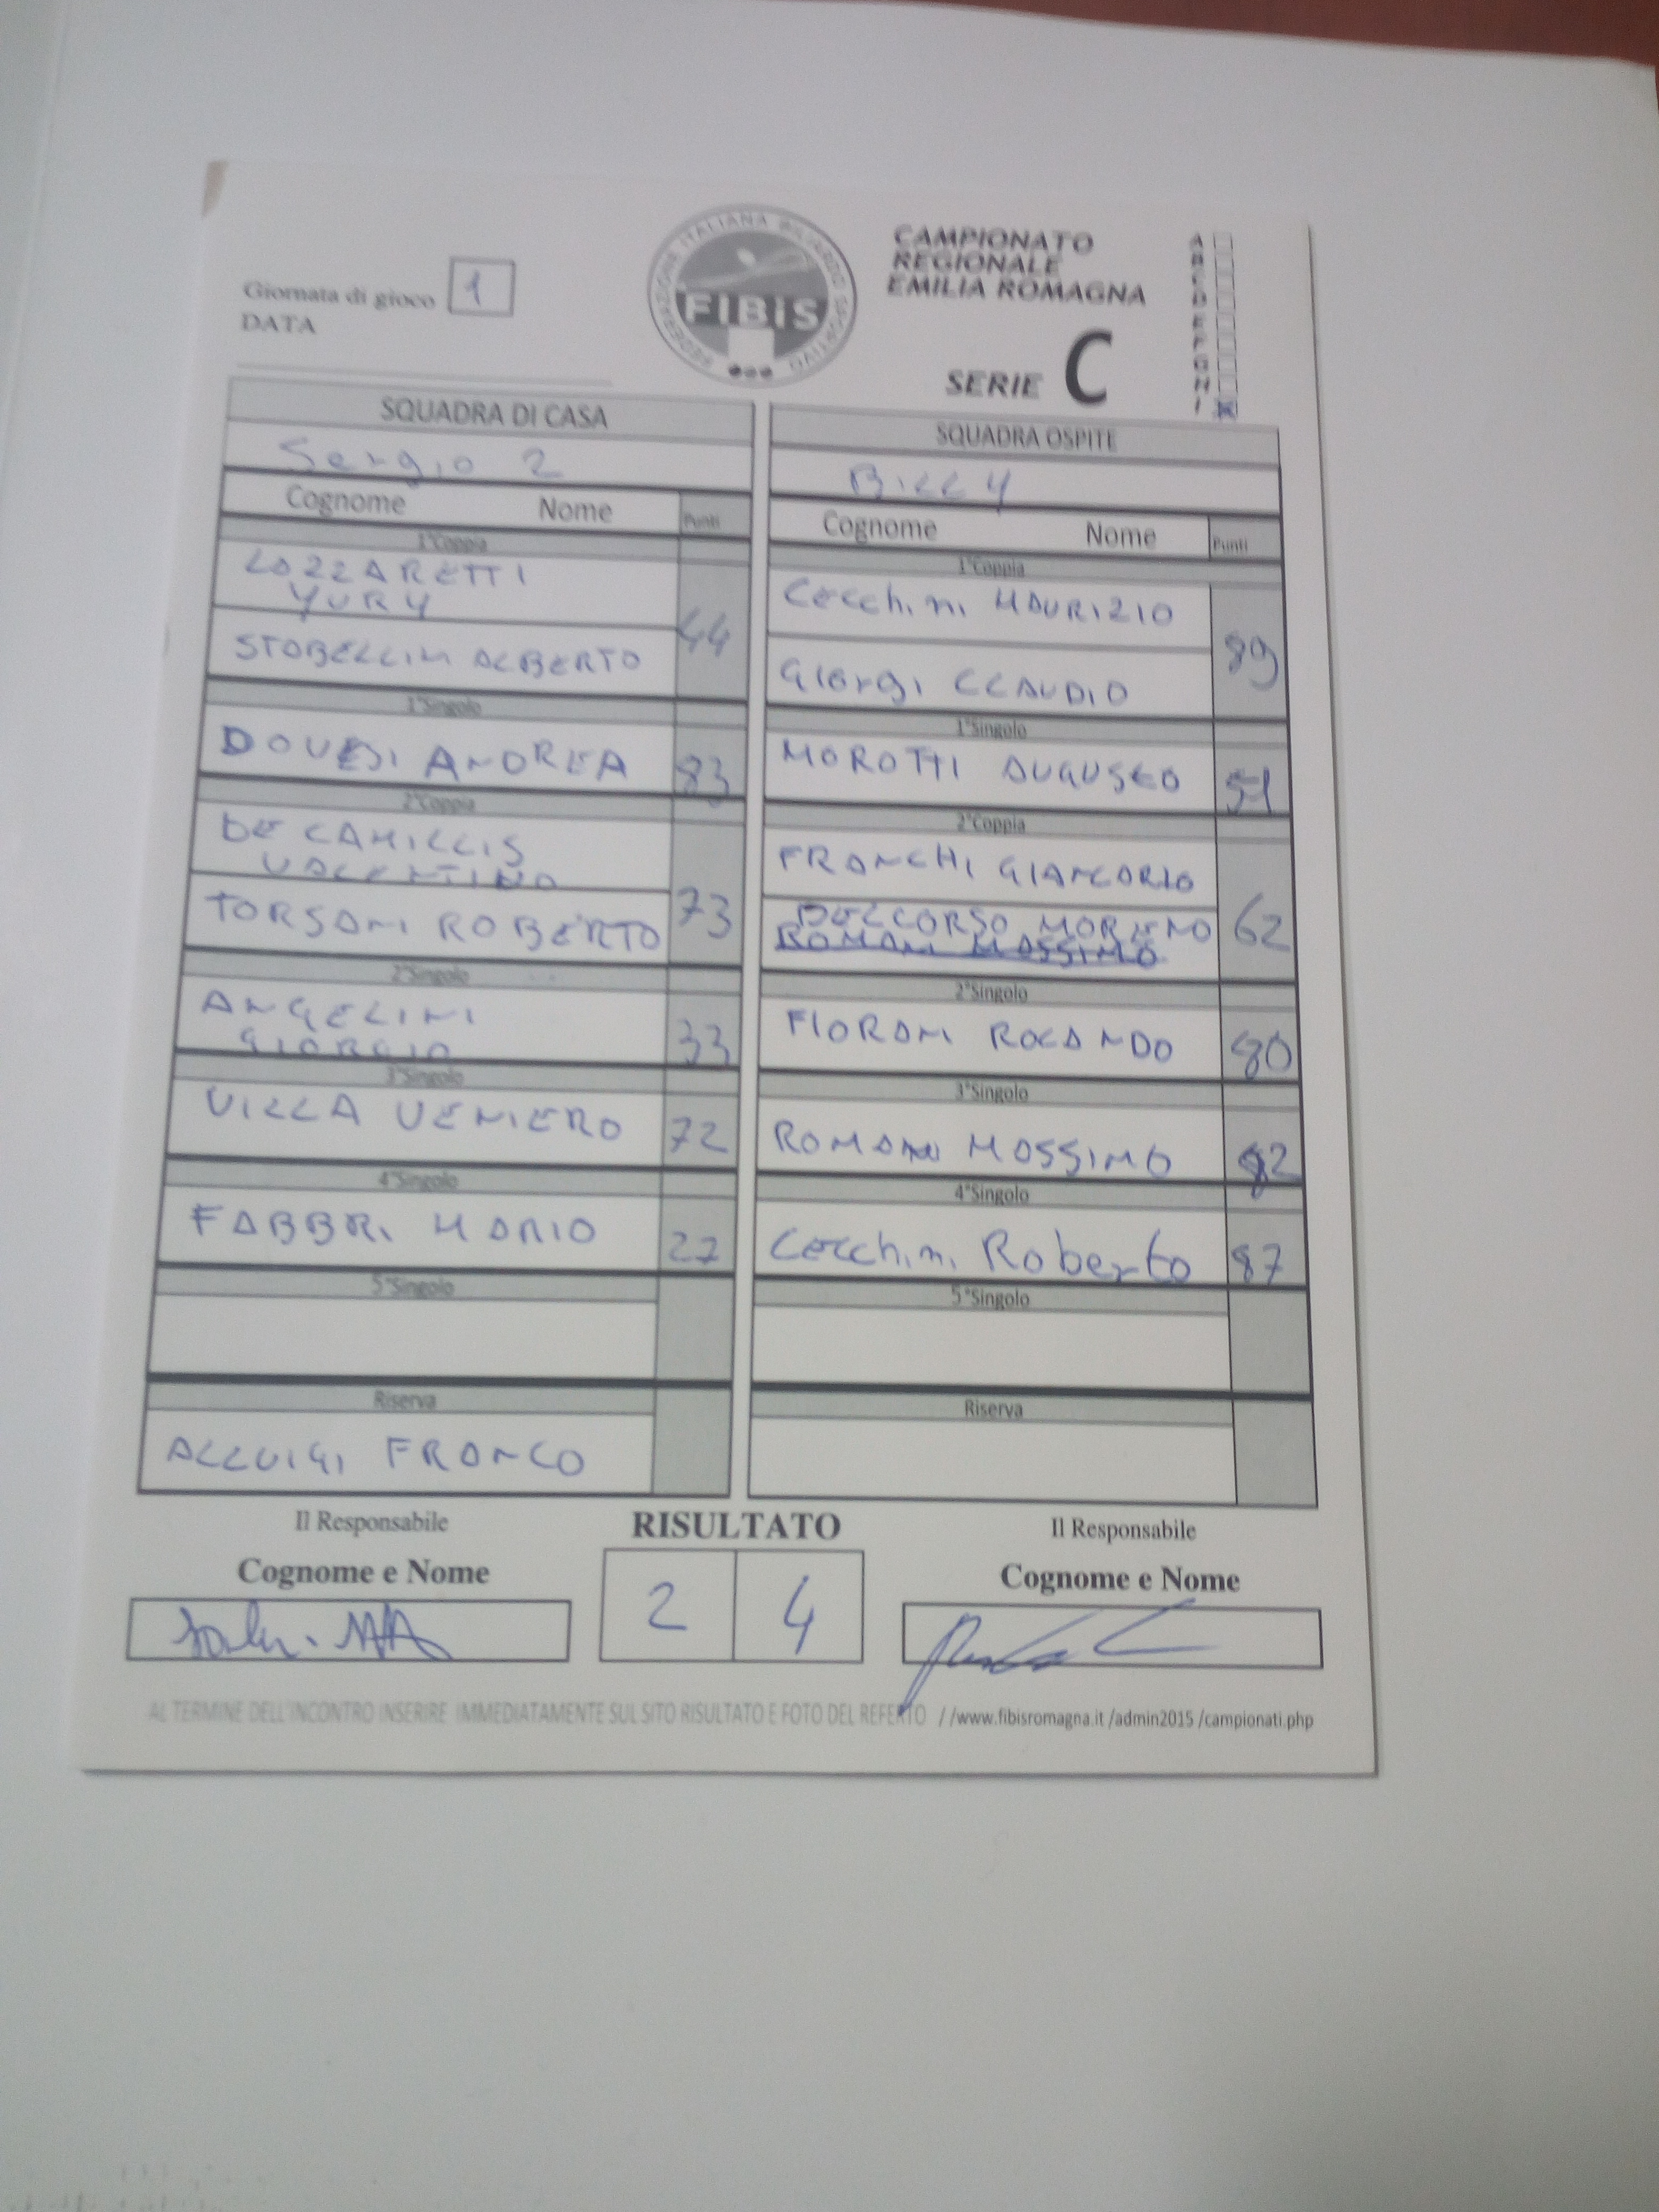 Giornata di gioco 1
DATA
FEDERAZIONE ITALIANA BILIARDO SPORTIVO
FIBiS
CAMPIONATO
REGIONALE
EMILIA ROMAGNA
SERIE C
A
B
C
D
E
F
G
H
I
SQUADRA DI CASA
Sergio 2
Cognome Nome Punti
1°Coppia
LAZZARETTI
YURY 44
STABELLINI ALBERTO
1°Singolo
DOVESI ANDREA 83
2°Coppia
DE CAMILLIS
VALENTINO 73
TORSANI ROBERTO
2°Singolo
ANGELINI
GIORGIO 33
3°Singolo
VILLA VENIERO 72
4°Singolo
FABBRI MARIO 27
5°Singolo
Riserva
ALLUIGI FRANCO
SQUADRA OSPITE
BILLY
Cognome Nome Punti
1°Coppia
Cecchini MAURIZIO 89
Giorgi CLAUDIO
1°Singolo
MOROTTI AUGUSTO 51
2°Coppia
FRANCHI GIANCARLO 62
DELCORSO MORENO
ROMANI MASSIMO
2°Singolo
FIORANI ROLANDO 80
3°Singolo
ROMANI MASSIMO 82
4°Singolo
Cecchini Roberto 87
5°Singolo
Riserva
Il Responsabile
Cognome e Nome
RISULTATO
2 4
Il Responsabile
Cognome e Nome
AL TERMINE DELL'INCONTRO INSERIRE IMMEDIATAMENTE SUL SITO RISULTATO E FOTO DEL REFERTO //www.fibisromagna.it /admin2015 /campionati.php